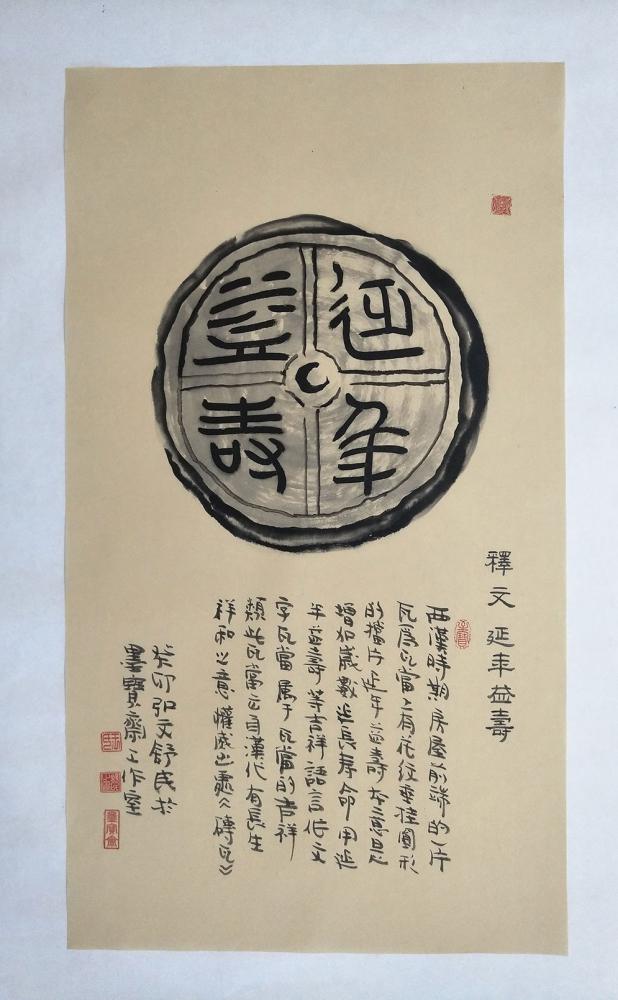 延年
益壽
釋文 延年益壽
西漢時期房屋前端的一片
瓦為瓦當上有花紋垂挂圓形
的擋片延年益壽本意是
增加歲數延長壽命用延
年益壽等吉祥語言作文
字瓦當屬于瓦當的吉祥
類此瓦當立自漢代有長生
祥和之意 權威出處《磚瓦》
癸卯弘文舒氏於
墨寶齋工作室